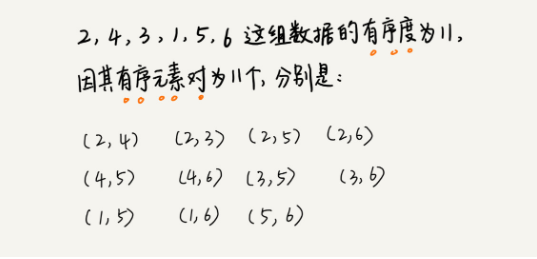 2, 4, 3, 1, 5, 6 这组数据的有序度为11,
因其有序元素对为11个, 分别是:
(2, 4) (2, 3) (2, 5) (2, 6)
(4, 5) (4, 6) (3, 5) (3, 6)
(1, 5) (1, 6) (5, 6)